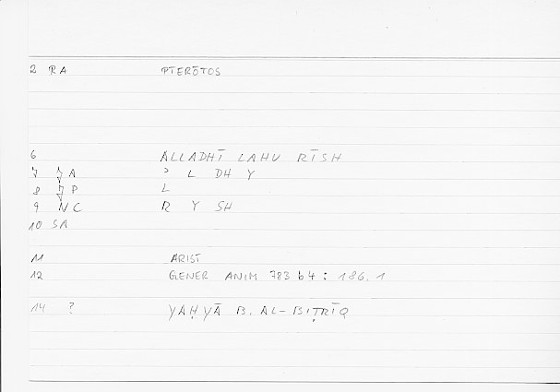 2 RA PTERŌTOS
6 ALLADHĪ LAHU RĪSH
7 A ʾ L DH Y
8 P L
9 NC R Y SH
10 SA
11 ARIST
12 GENER ANIM 783 b4 : 186.1
14 ? YAḤYĀ B. AL-BIṬRĪQ